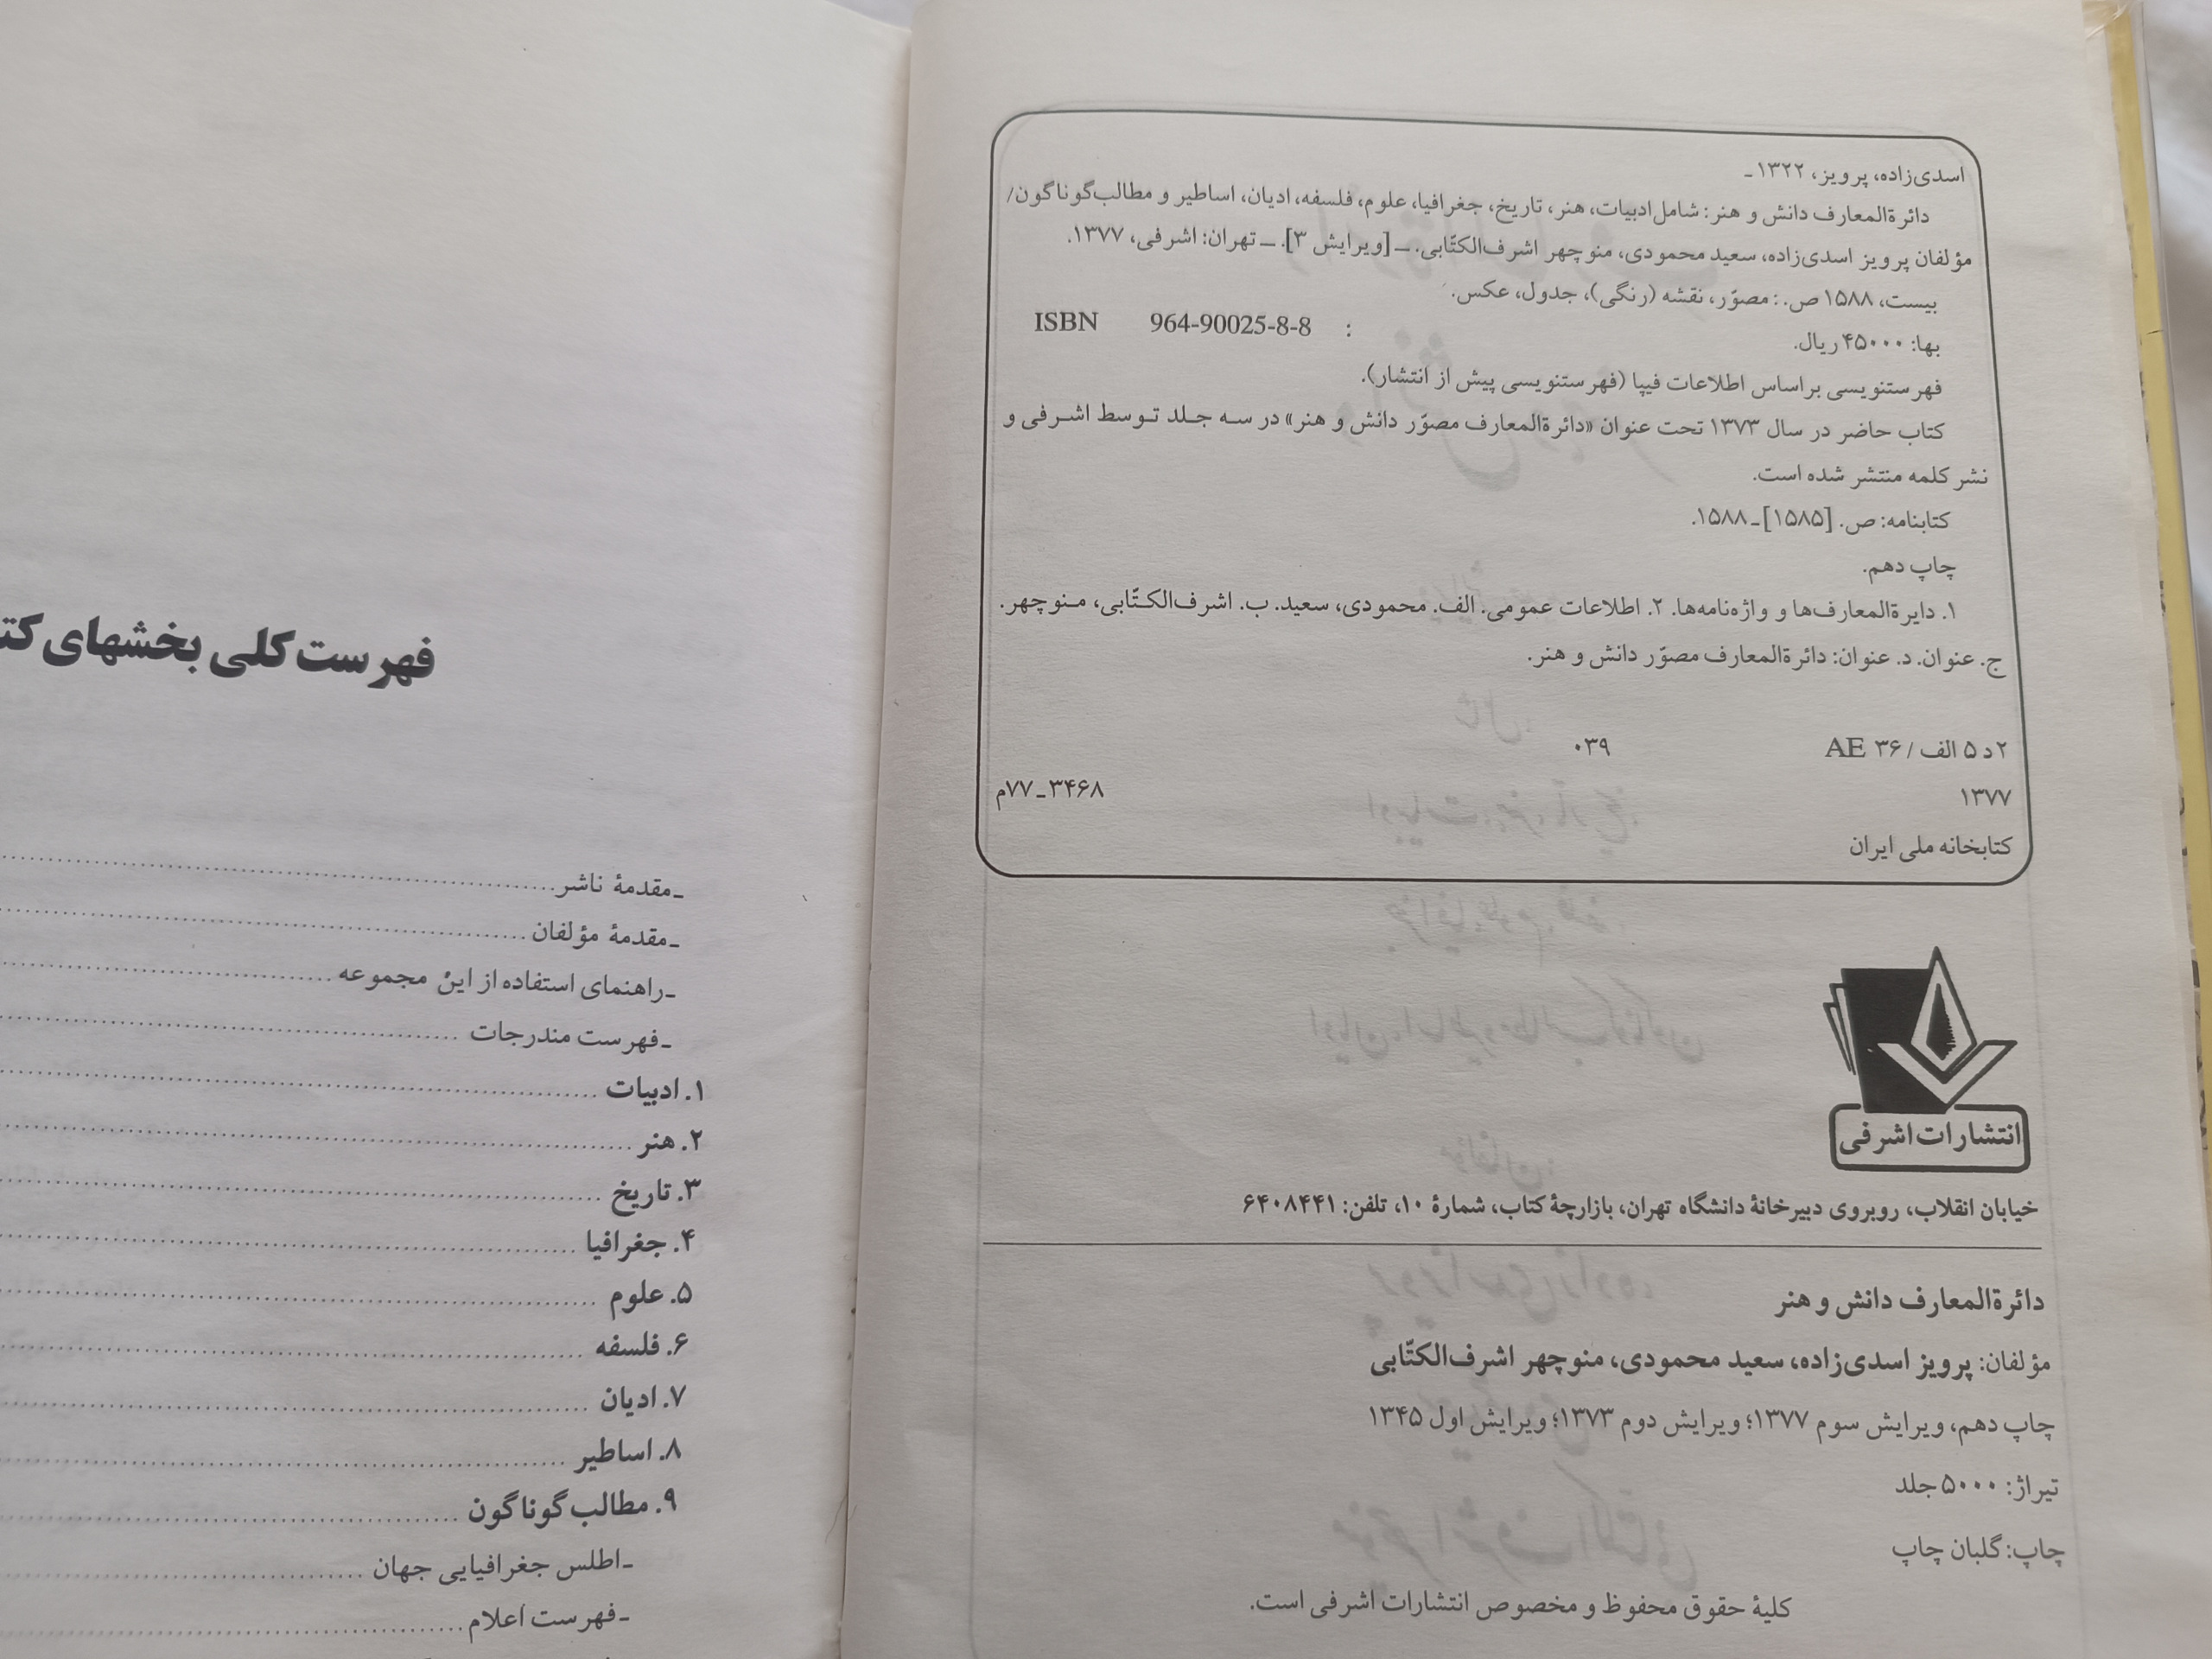 اسدی‌زاده، پرویز، ۱۳۲۲ ـ
دائرة‌المعارف دانش و هنر: شامل ادبیات، هنر، تاریخ، جغرافیا، علوم، فلسفه، ادیان، اساطیر و مطالب گوناگون/
مؤلفان پرویز اسدی‌زاده، سعید محمودی، منوچهر اشرف‌الکتّابی. ـ [ویرایش ۳]. ـ تهران: اشرفی، ۱۳۷۷.
بیست، ۱۵۸۸ ص.: مصوّر، نقشه (رنگی)، جدول، عکس.
ISBN 964-90025-8-8 :
بها: ۴۵۰۰۰ ریال.
فهرستنویسی براساس اطلاعات فیپا (فهرستنویسی پیش از انتشار).
کتاب حاضر در سال ۱۳۷۳ تحت عنوان «دائرة‌المعارف مصوّر دانش و هنر» در سه جلد توسط اشرفی و
نشر کلمه منتشر شده است.
کتابنامه: ص. [۱۵۸۵] ـ ۱۵۸۸.
چاپ دهم.
۱. دایرة‌المعارف‌ها و واژه‌نامه‌ها. ۲. اطلاعات عمومی. الف. محمودی، سعید. ب. اشرف‌الکتّابی، منوچهر.
ج. عنوان. د. عنوان: دائرة‌المعارف مصوّر دانش و هنر.
۲ د ۵ الف / ۳۶ AE ۰۳۹
۱۳۷۷ ۳۴۶۸ ـ ۷۷م
کتابخانه ملی ایران
انتشارات اشرفی
خیابان انقلاب، روبروی دبیرخانهٔ دانشگاه تهران، بازارچهٔ کتاب، شمارهٔ ۱۰، تلفن: ۶۴۰۸۴۴۱
دائرة‌المعارف دانش و هنر
مؤلفان: پرویز اسدی‌زاده، سعید محمودی، منوچهر اشرف‌الکتّابی
چاپ دهم، ویرایش سوم ۱۳۷۷؛ ویرایش دوم ۱۳۷۳؛ ویرایش اول ۱۳۴۵
تیراژ: ۵۰۰۰ جلد
چاپ: گلبان چاپ
کلیهٔ حقوق محفوظ و مخصوص انتشارات اشرفی است.
فهرست کلی بخشهای
ـ مقدمهٔ ناشر
ـ مقدمهٔ مؤلفان
ـ راهنمای استفاده از این مجموعه
ـ فهرست مندرجات
۱. ادبیات
۲. هنر
۳. تاریخ
۴. جغرافیا
۵. علوم
۶. فلسفه
۷. ادیان
۸. اساطیر
۹. مطالب گوناگون
ـ اطلس جغرافیایی جهان
ـ فهرست اعلام